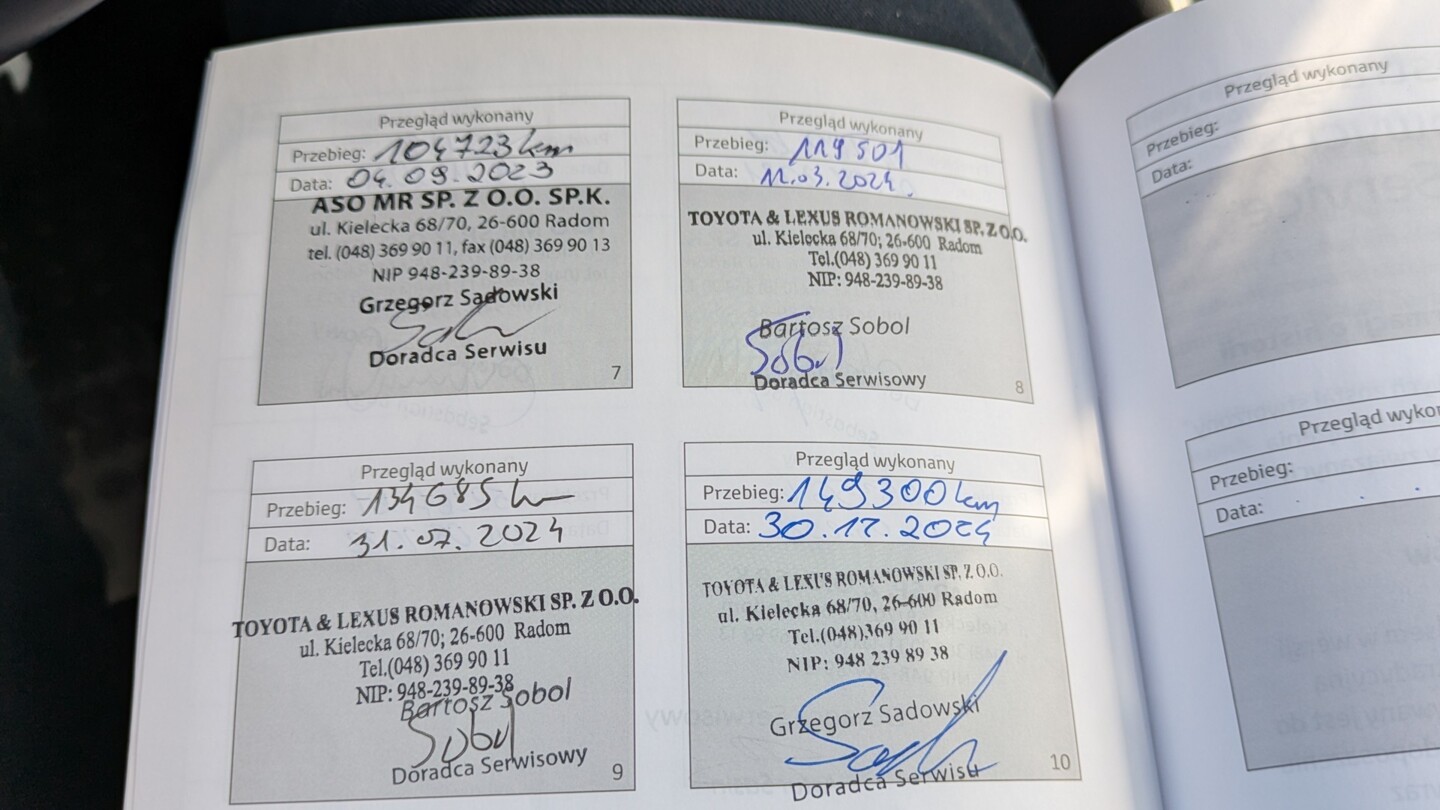 Przegląd wykonany
Przebieg: 104723 km
Data: 04.09.2023
ASO MR SP. Z O.O. SP.K.
ul. Kielecka 68/70, 26-600 Radom
tel. (048) 369 90 11, fax (048) 369 90 13
NIP 948-239-89-38
Grzegorz Sadowski
Doradca Serwisu
7
Przegląd wykonany
Przebieg: 119501
Data: 11.03.2024.
TOYOTA & LEXUS ROMANOWSKI SP. Z O.O.
ul. Kielecka 68/70; 26-600 Radom
Tel.(048) 369 90 11
NIP: 948-239-89-38
Bartosz Sobol
Sobol
Doradca Serwisowy
8
Przegląd wykonany
Przebieg: 134685 km
Data: 31.07.2024
TOYOTA & LEXUS ROMANOWSKI SP. Z O.O.
ul. Kielecka 68/70; 26-600 Radom
Tel.(048) 369 90 11
NIP: 948-239-89-38
Bartosz Sobol
Sobol
Doradca Serwisowy
9
Przegląd wykonany
Przebieg: 149300 km
Data: 30.12.2024
TOYOTA & LEXUS ROMANOWSKI SP. Z O.O.
ul. Kielecka 68/70, 26-600 Radom
Tel.(048)369 90 11
NIP: 948 239 89 38
Grzegorz Sadowski
Doradca Serwisu
10
Przegląd wykonany
Przebieg:
Data:
Przegląd
Przebieg:
Data: